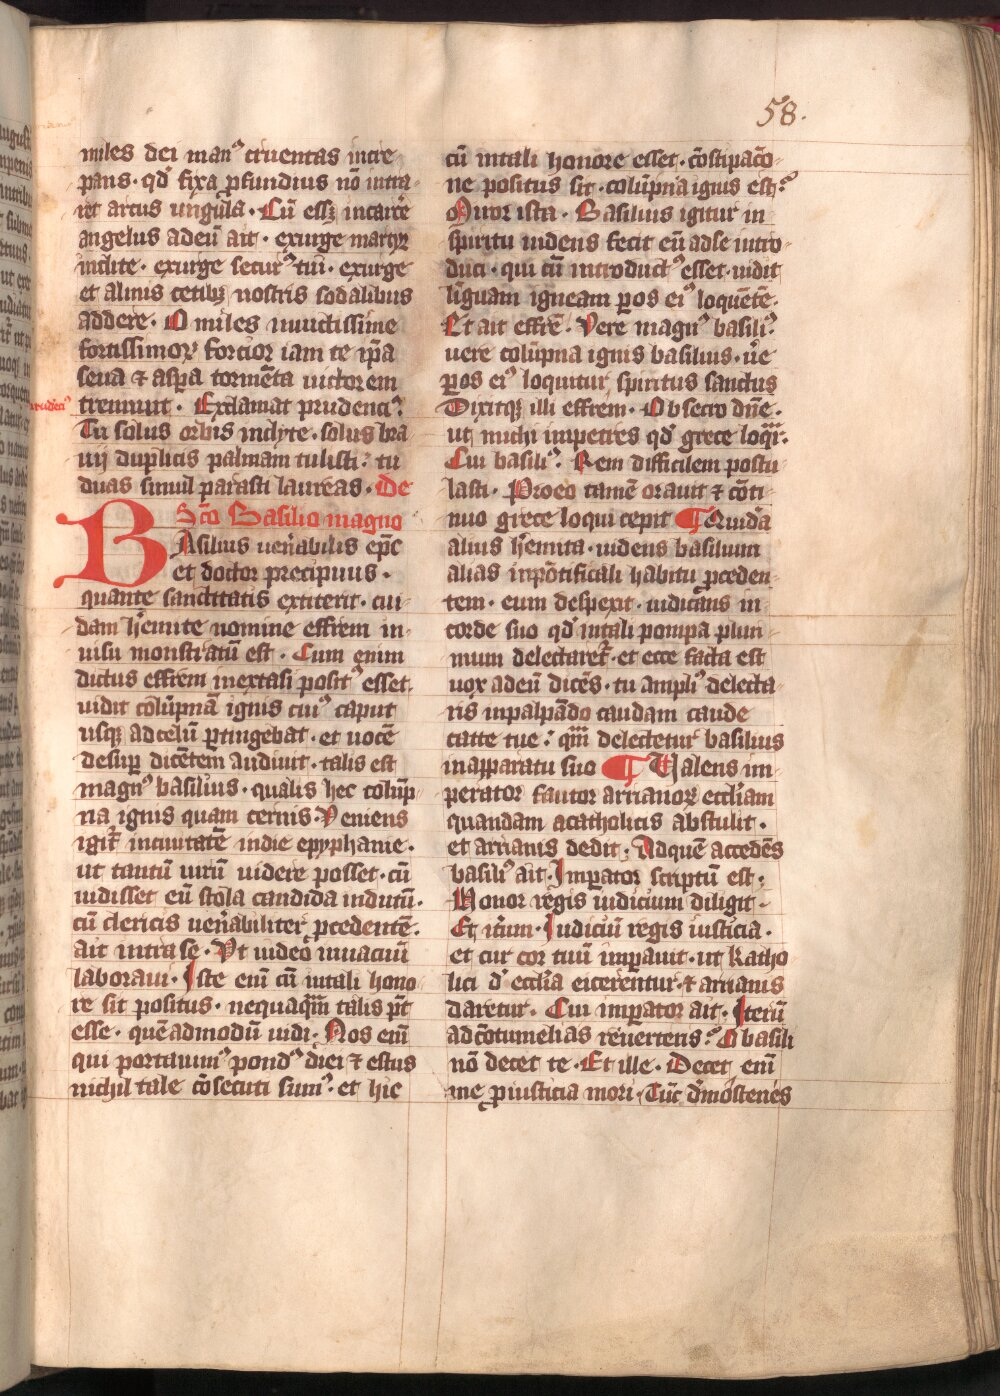 58.
miles dei manꝰ cruentas incre
pans · qđ fixa ꝓfundius nō intra
ret arcus ungula · Cū essꝫ incarce
angelus adeū ait · exurge martyr
inclite · exurge securꝰ tui · exurge
et almis cetibꝫ nostris sodalibus
addere · O miles inuictissime
fortissimoꝝ forcior iam te ip̄a
seua ⁊ aspa tormēta uictorem
tremunt · Exclamat prudenciꝰ ·
Tu solus orbis inclyte · solus bra
uij duplicis palmam tulisti : tu
duas simul parasti laureas · De
Sc̄o Basilio magno
BAsilius uen̄abilis ep̄c
et doctor precipuus ·
quante sanctitatis extiterit · cui
dam h̄emite nomine effrem in
uisu monstratū est · Cum enim
dictus effrem inextasi positꝰ esset ·
uidit colūpnā ignis cuiꝰ caput
usqꝫ adcelū ꝑtingebat · et uocē
desuꝑ dicētem audiuit · talis est
magnꝰ basilius · qualis hec colūp
na ignis quam cernis · Veniens
igit̄ inciuitatē indie epyphanie ·
ut tantū uirū uidere posset · cū
uidisset eū stola candida indutū ·
cū clericis uen̄abiliter ꝓcedentē ·
ait intra se · Vt uideo inuacuū
laboraui · Iste eni cū intali hono
re sit positus · nequaqm̄ talis p̄t
esse · quēadmodū uidi · Nos eni
qui portauimꝰ pondꝰ diei ⁊ estus
nichil tale cōsecuti sumꝰ · et hic
cū intali honore esset · cōstipac̄o
ne positus sit · colūpna ignis est ·
Miror ista · Basilius igitur in
spiritu uidens fecit eū adse intro
duci · qui cū introductꝰ esset · uidit
linguam igneam ꝑ os eiꝰ loquētē ·
Et ait effrē · Vere magnꝰ basiliꝰ ·
uere colūpna ignis basilius · ūe
ꝑ os eiꝰ loquitur spiritus sanctus
Dixitqꝫ illi effrem · Obsecro dn̄e ·
ut michi impetres qđ grece loqr̄ ·
Cui basiliꝰ · Rem difficilem postu
lasti · Proeo tamē orauit ⁊ cōti
nuo grece loqui cepit ¶ Quidā
alius h̄emita · uidens basilium
alias inpōtificali habitu ꝓceden
tem · eum despexit · iudicans in
corde suo qđ intali pompa pluri
mum delectaret̄ · et ecce facta est
uox adeū dicēs · tu ampliꝰ delecta
ris inpalpādo caudam caude
catte tue : qm̄ delectetur basilius
inapparatu suo ¶ Valens im
perator fautor arrianoꝝ eccl̄iam
quandam acatholicis abstulit ·
et arrianis dedit · Adquē accedēs
basiliꝰ ait · Imꝑator scriptū est ·
Honor regis iudicium diligit ·
Et it̄um · Iudiciū regis iusticia ·
et cur cor tuū imꝑauit · ut Katho
lici d' eccl̄ia eicerentur · ⁊ arrianis
daretur · Cui imꝑator ait · Iterū
adcōtumelias reuerteris · O basili
nō decet te · Et ille · Decet eni
me ꝓ iusticia mori · Tūc dmostenes